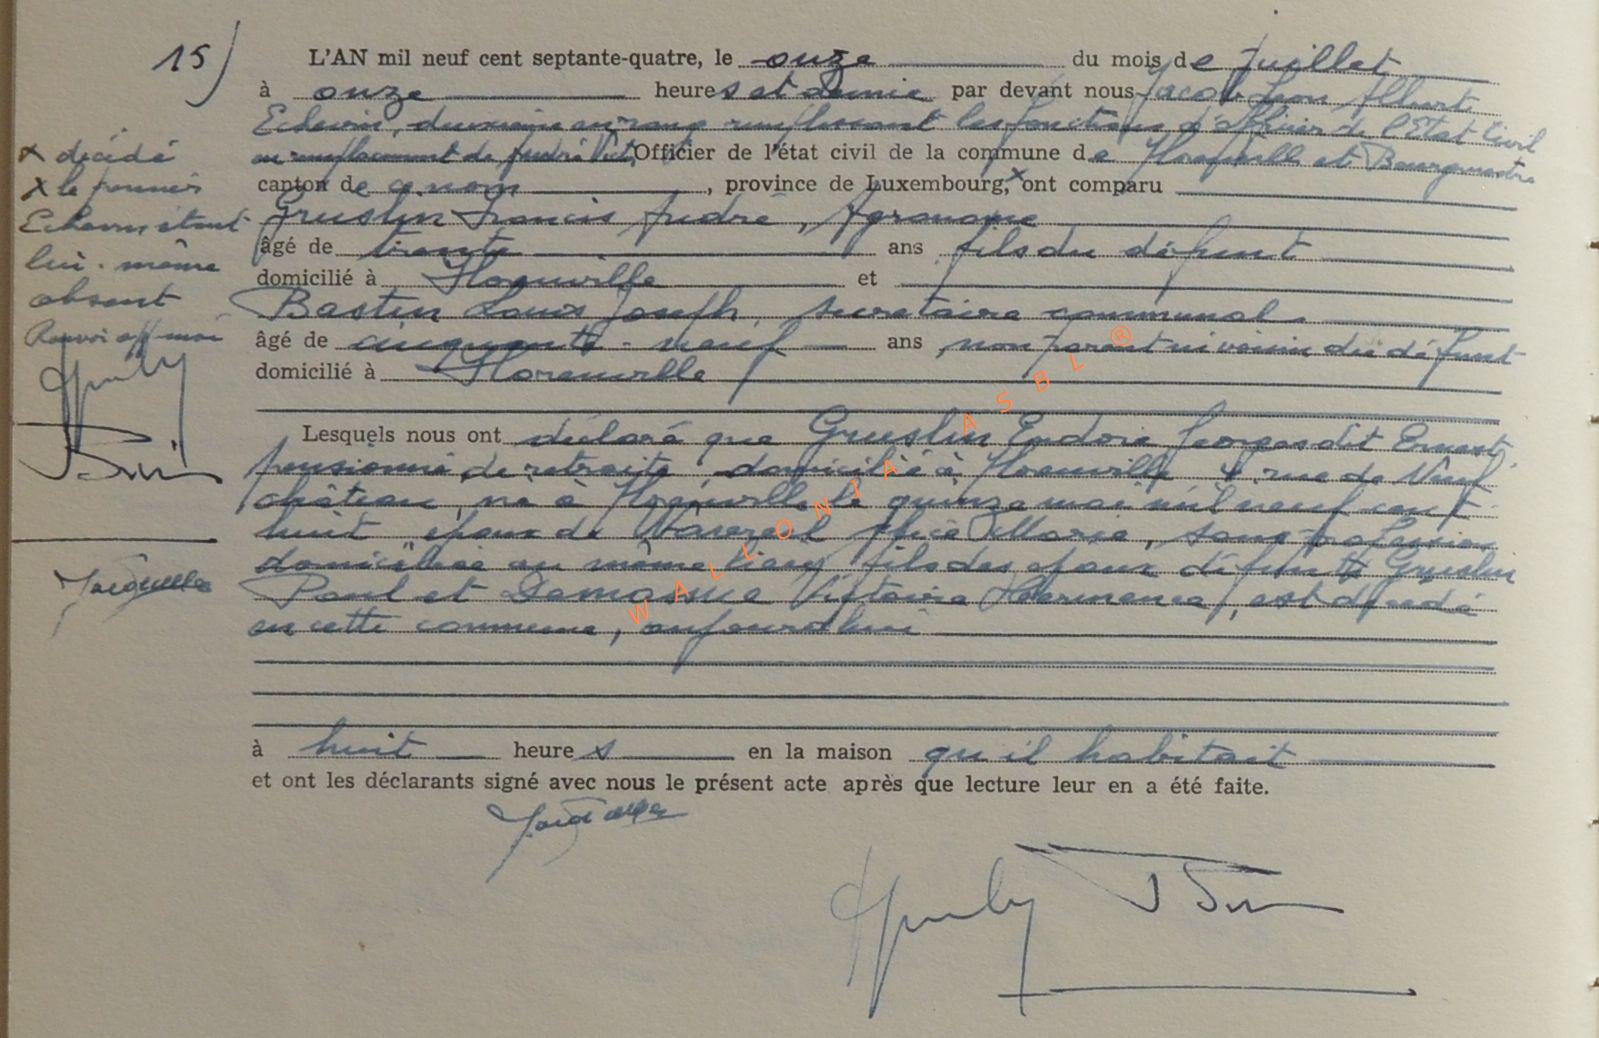 15)
L'AN mil neuf cent septante-quatre, le onze du mois de Juillet
à onze heures et demie par devant nous Jacob Léon Albert
Echevin, deuxième en rang remplissant les fonctions d'officier de l'Etat Civil
en remplacement de Officier de l'état civil de la commune de et Bourgmestre
canton de ce nom, province de Luxembourg,x ont comparu
x décédé
x le premier
Echevin étant
lui-même
absent
Gruslin Francis André, Agronome
âgé de trente ans fils du défunt
domicilié à et
Bastin Louis Joseph, secrétaire communal
âgé de cinquante-neuf ans, non parent ni voisin du défunt
domicilié à
Lesquels nous ont déclaré que Gruslin Georges dit Ernest
pensionné de retraite, domicilié à rue de Neuf
château, né à le quinze mai mil neuf cent
huit, époux de Marie, sans profession
domiciliée au même lieu, fils des époux défunts Gruslin
Paul et Victoire Hermance, est décédé
en cette commune, aujourd'hui
à huit heures en la maison qu'il habitait
et ont les déclarants signé avec nous le présent acte après que lecture leur en a été faite.
WALLONIA ASBL ®